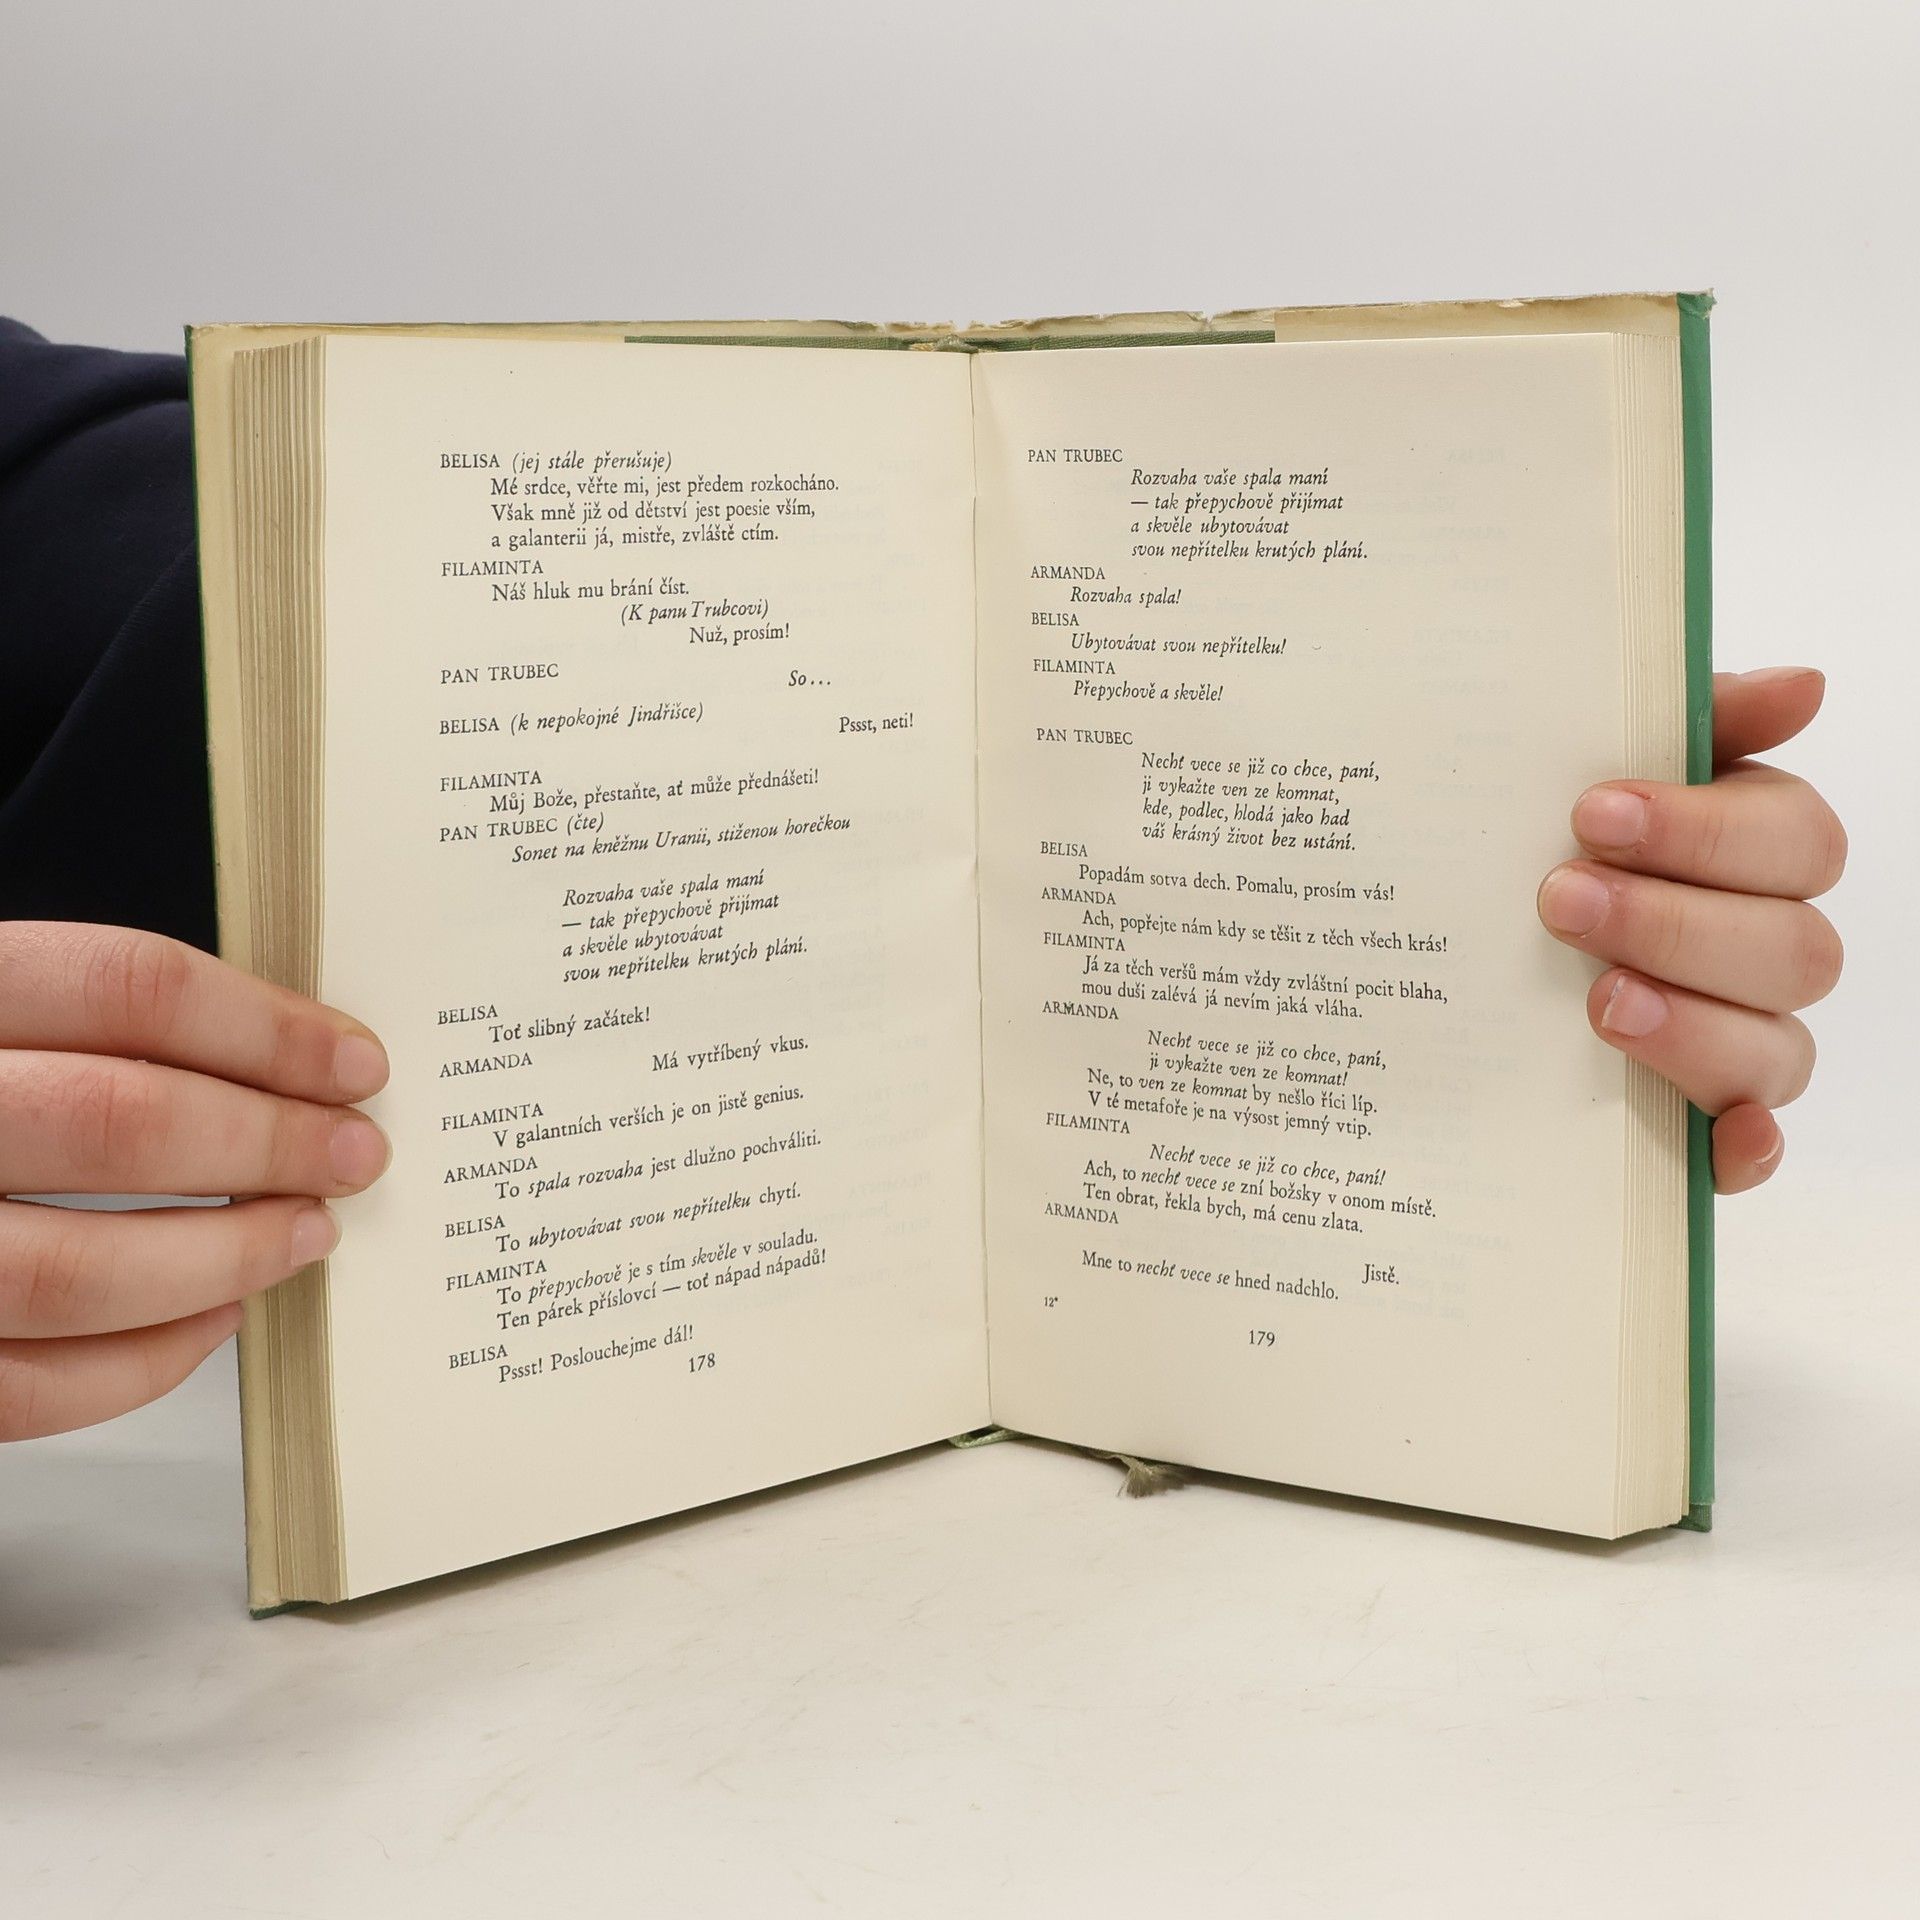 BELISA (jej stále přerušuje)
Mé srdce, věřte mi, jest předem rozkocháno.
Však mně již od dětství jest poesie vším,
a galanterii já, mistře, zvláště ctím.
FILAMINTA
Náš hluk mu brání číst.
(K panu Trubcovi)
Nuž, prosím!
PAN TRUBEC
So...
BELISA (k nepokojné Jindřišce)
Pssst, neti!
FILAMINTA
Můj Bože, přestaňte, ať může přednášeti!
PAN TRUBEC (čte)
Sonet na kněžnu Uranii, stiženou horečkou
Rozvaha vaše spala maní
— tak přepychově přijímat
a skvěle ubytovávat
svou nepřítelku krutých plání.
BELISA
Toť slibný začátek!
ARMANDA
Má vytříbený vkus.
FILAMINTA
V galantních verších je on jistě genius.
ARMANDA
To spala rozvaha jest dlužno pochváliti.
BELISA
To ubytovávat svou nepřítelku chytí.
FILAMINTA
To přepychově je s tím skvěle v souladu.
Ten párek příslovcí — toť nápad nápadů!
BELISA
Pssst! Poslouchejme dál!
178
PAN TRUBEC
Rozvaha vaše spala maní
— tak přepychově přijímat
a skvěle ubytovávat
svou nepřítelku krutých plání.
ARMANDA
Rozvaha spala!
BELISA
Ubytovávat svou nepřítelku!
FILAMINTA
Přepychově a skvěle!
PAN TRUBEC
Nechť vece se již co chce, paní,
ji vykažte ven ze komnat,
kde, podlec, hlodá jako had
váš krásný život bez ustání.
BELISA
Popadám sotva dech. Pomalu, prosím vás!
ARMANDA
Ach, popřejte nám kdy se těšit z těch všech krás!
FILAMINTA
Já za těch veršů mám vždy zvláštní pocit blaha,
mou duši zalévá já nevím jaká vláha.
ARMANDA
Nechť vece se již co chce, paní,
ji vykažte ven ze komnat!
Ne, to ven ze komnat by nešlo říci líp.
V té metafoře je na výsost jemný vtip.
FILAMINTA
Nechť vece se již co chce, paní!
Ach, to nechť vece se zní božsky v onom místě.
Ten obrat, řekla bych, má cenu zlata.
ARMANDA
Jistě.
Mne to nechť vece se hned nadchlo.
12*
179